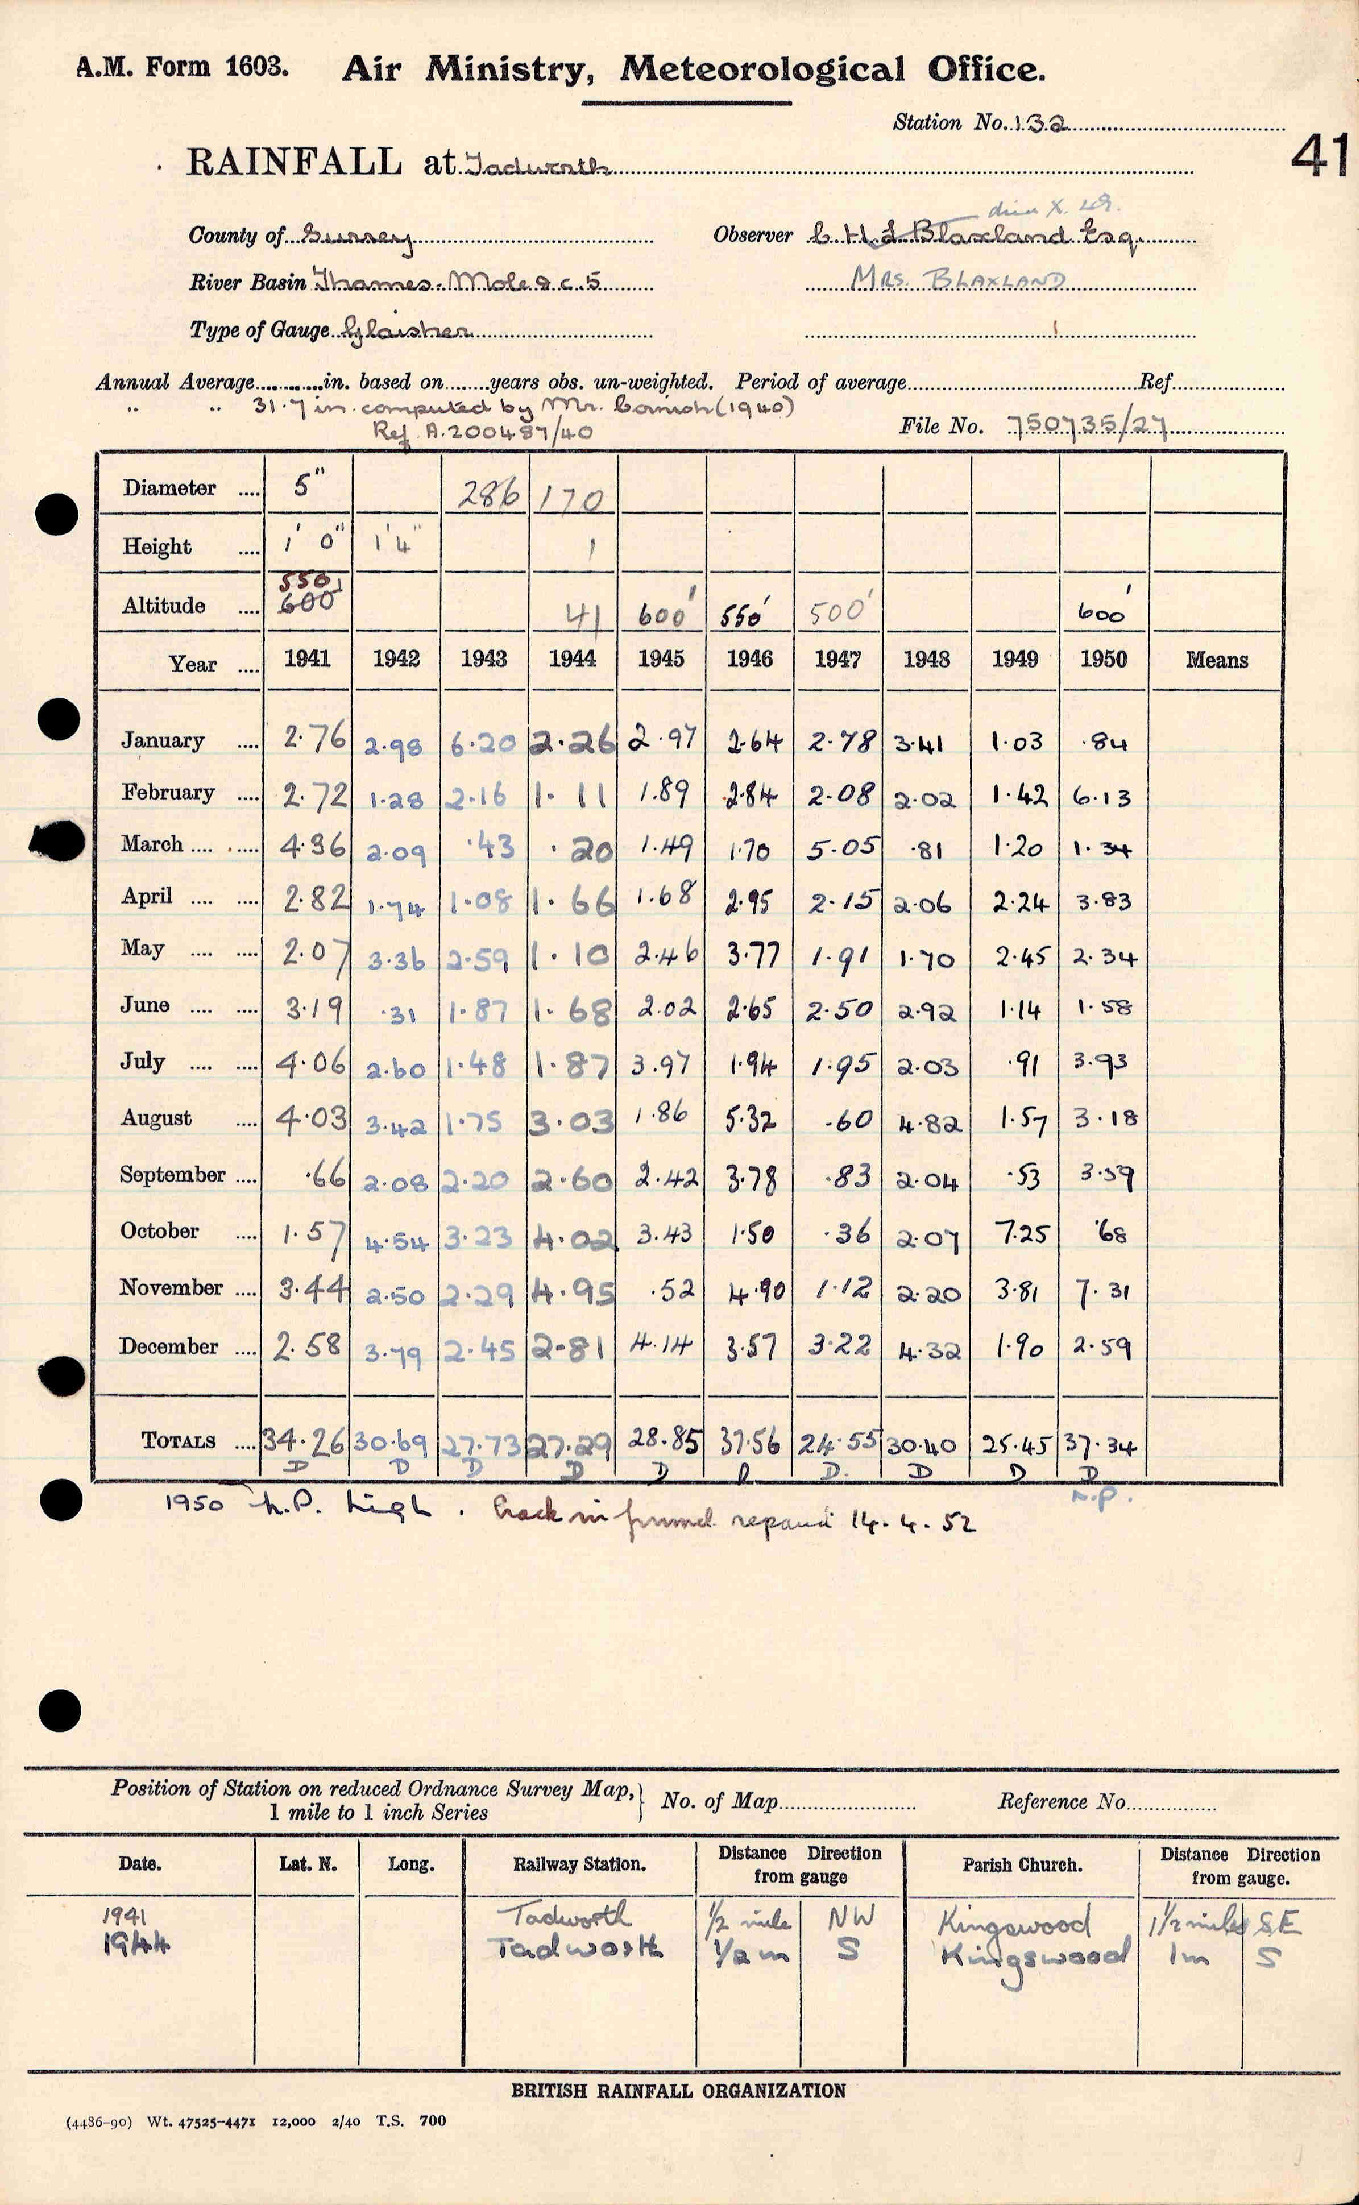 A.M. Form 1603. Air Ministry, Meteorological Office.
Station No. 132
41
RAINFALL at Tadworth
died X. 49.
County of Surrey Observer C. H. L. Blaxland Esq.
River Basin Thames. Mole & c. 5 MRS. BLAXLAND
Type of Gauge Glaisher 1
Annual Average in. based on years obs. un-weighted. Period of average Ref
" " 31.7 in. computed by Mr. Cornish (1940)
Ref A. 200487/40 File No. 750735/27
Diameter 5" 286 170
Height 1' 0" 1'4" 1
550
Altitude 600 41 600' 550' 500' 600'
Year 1941 1942 1943 1944 1945 1946 1947 1948 1949 1950 Means
January 2.76 2.98 6.20 2.26 2.97 2.64 2.78 3.41 1.03 .84
February 2.72 1.28 2.16 1.11 1.89 2.84 2.08 2.02 1.42 6.13
March 4.36 2.09 .43 .20 1.49 1.70 5.05 .81 1.20 1.34
April 2.82 1.74 1.08 1.66 1.68 2.95 2.15 2.06 2.24 3.83
May 2.07 3.36 2.59 1.10 2.46 3.77 1.91 1.70 2.45 2.34
June 3.19 .31 1.87 1.68 2.02 2.65 2.50 2.92 1.14 1.58
July 4.06 2.60 1.48 1.87 3.97 1.94 1.95 2.03 .91 3.93
August 4.03 3.42 1.75 3.03 1.86 5.32 .60 4.82 1.57 3.18
September .66 2.08 2.20 2.60 2.42 3.78 .83 2.04 .53 3.59
October 1.57 4.54 3.23 4.02 3.43 1.50 .36 2.07 7.25 .68
November 3.44 2.50 2.29 4.95 .52 4.90 1.12 2.20 3.81 7.31
December 2.58 3.79 2.45 2.81 4.14 3.57 3.22 4.32 1.90 2.59
TOTALS 34.26 30.69 27.73 27.29 28.85 37.56 24.55 30.40 25.45 37.34
D D D D D D D. D D D
n.p.
1950 N.P. high. Crack in funnel repaired 14.4.52
Position of Station on reduced Ordnance Survey Map, 1 mile to 1 inch Series No. of Map Reference No.
Date. Lat. N. Long. Railway Station. Distance Direction from gauge Parish Church. Distance Direction from gauge.
1941 Tadworth 1/2 mile NW Kingswood 1 1/2 miles SE
1944 Tadworth 1/2 m S Kingswood 1m S
BRITISH RAINFALL ORGANIZATION
(4486-90) Wt. 47525-4471 12,000 2/40 T.S. 700